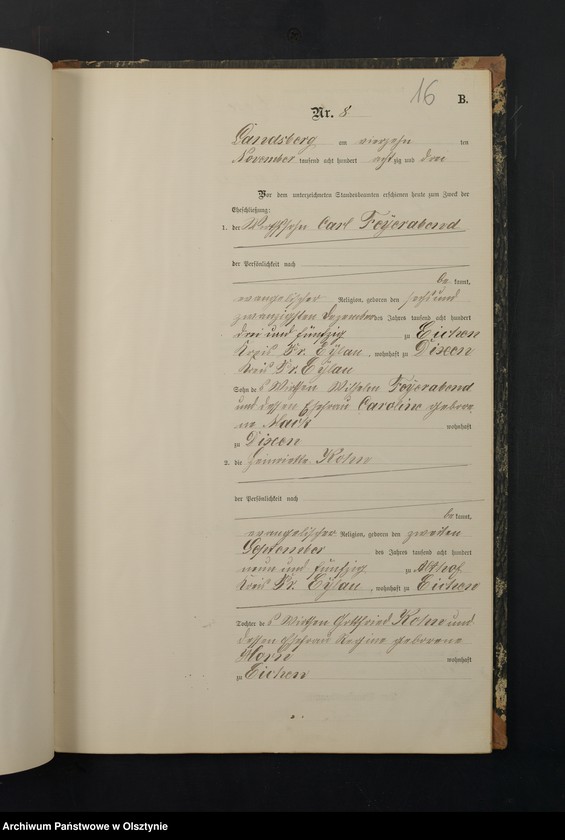 16
B.
Nr. 8
Landsberg am vierzehn ten
November tausend acht hundert achtzig und drei
Vor dem unterzeichneten Standesbeamten erschienen heute zum Zweck der
Eheschließung:
1. der Wirthssohn Carl Feyerabend
der Persönlichkeit nach
be kannt,
evangelischer Religion, geboren den sechs und
zwanzigsten Dezember des Jahres tausend acht hundert
drei und fünfzig zu Eichen
Kreis Pr. Eylau, wohnhaft zu Dixen
Kreis Pr. Eylau
Sohn des Wirthen Wilhelm Feyerabend
und dessen Ehefrau Caroline gebore
ne wohnhaft
zu Dixen
2. die Henriette Kohn
der Persönlichkeit nach
be kannt,
evangelischer Religion, geboren den zweiten
September des Jahres tausend acht hundert
neun und fünfzig zu Althof
Kreis Pr. Eylau, wohnhaft zu Eichen
Tochter des Wirthen Gottfried Kohn und
dessen Ehefrau Regine geborene
Horn wohnhaft
zu Eichen
Archiwum Państwowe w Olsztynie